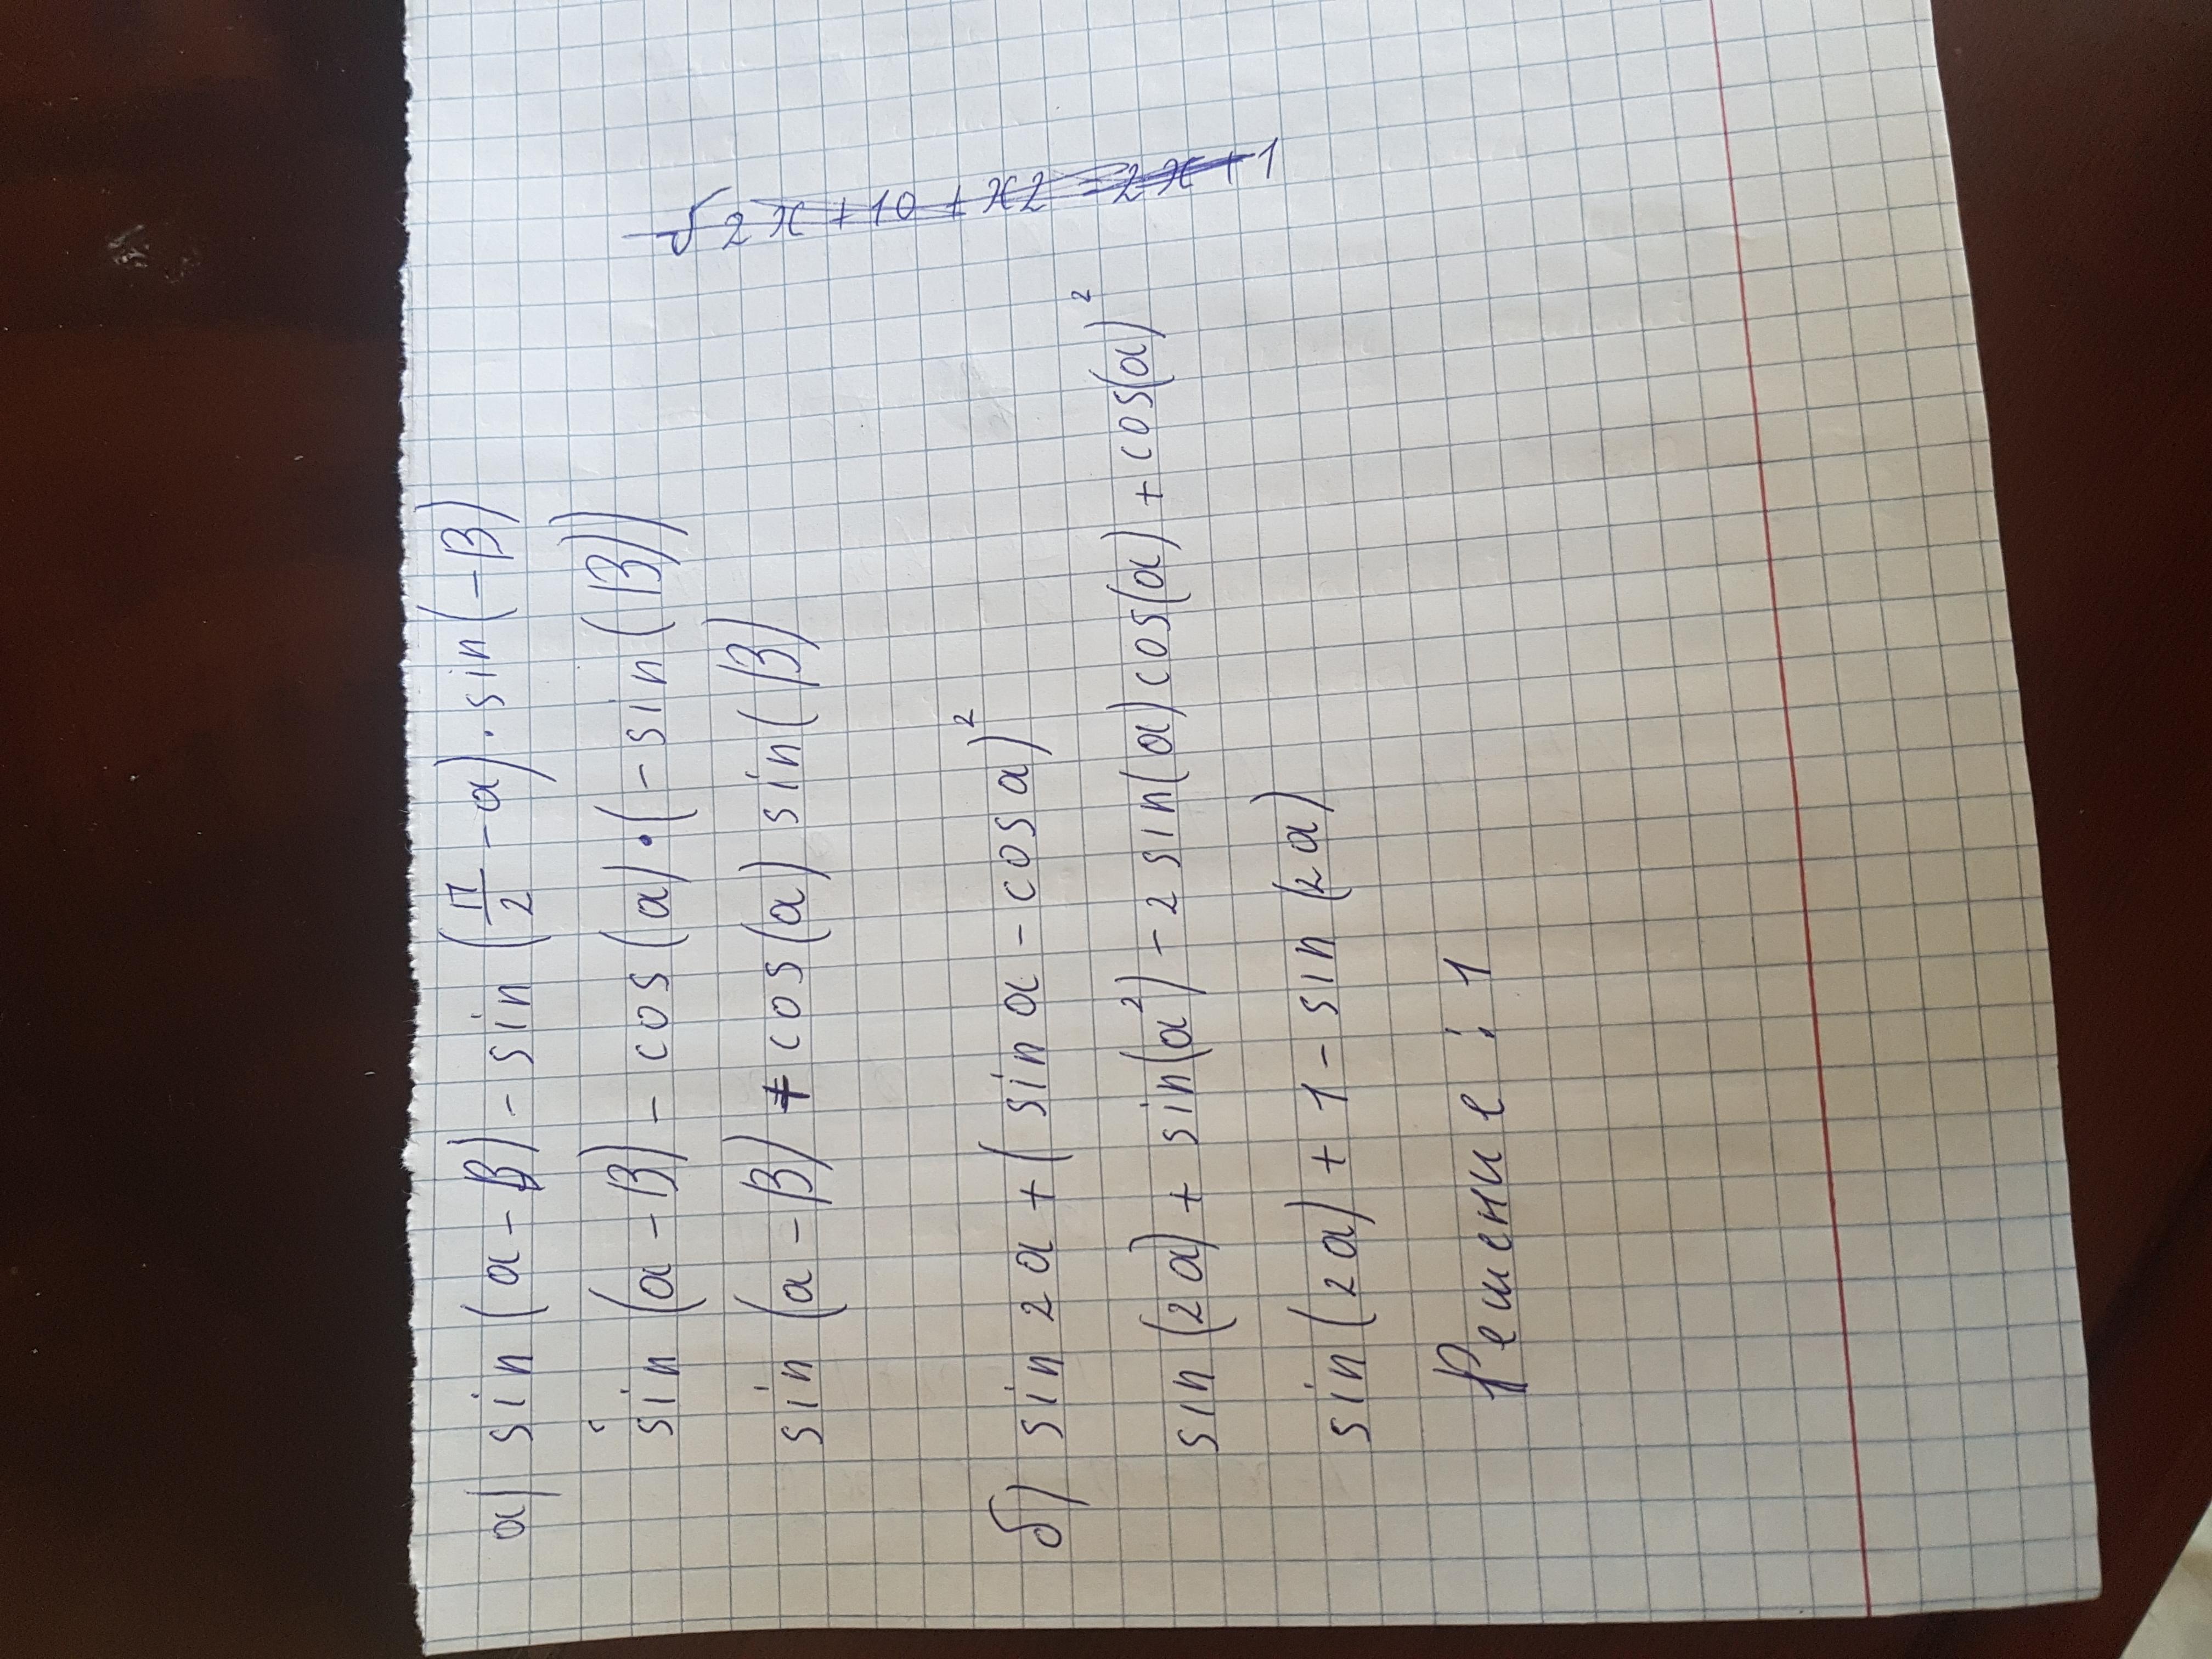 а) sin (a - β) - sin (π/2 - a) · sin (-β)
sin (a - β) - cos (a) · (- sin (β))
sin (a - β) + cos (a) sin (β)
б) sin 2a + (sin a - cos a)²
sin (2a) + sin(a²) - 2 sin(a) cos(a) + cos(a)²
sin (2a) + 1 - sin (2a)
Решение : 1
√2x + 10 + x2 = 2x + 1